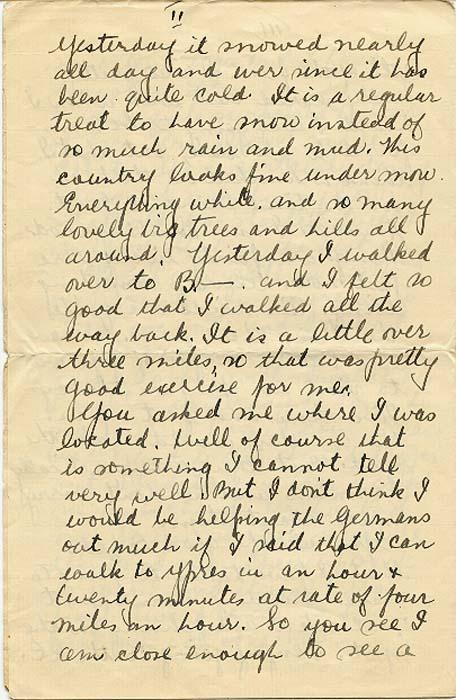 11
Yesterday it snowed nearly
all day and ever since it has
been quite cold. It is a regular
treat to have snow instead of
so much rain and mud. This
country looks fine under snow.
Everything white, and so many
lovely big trees and hills all
around. Yesterday I walked
over to B.—. and I felt so
good that I walked all the
way back. It is a little over
three miles, so that was pretty
good exercise for me.
You asked me where I was
located. Well of course that
is something I cannot tell
very well. But I don't think I
would be helping the Germans
out much if I said that I can
walk to Ypres in an hour &
twenty minutes at rate of four
miles an hour. So you see I
am close enough to see a